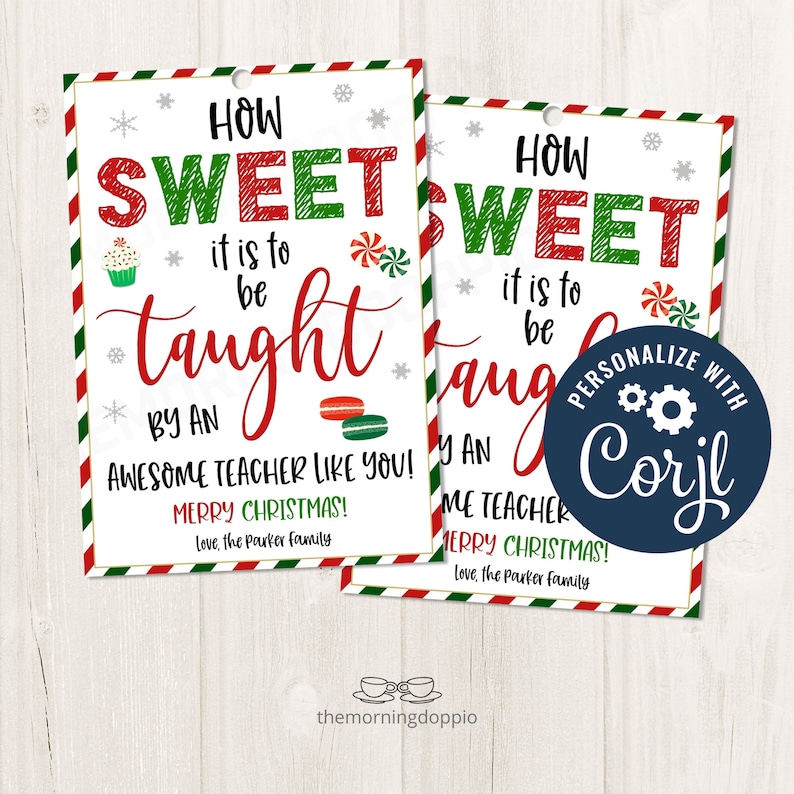 HOW
SWEET
it is to
be
taught
BY AN
AWESOME TEACHER LIKE YOU!
MERRY CHRISTMAS!
Love, the Parker Family
HOW
SWEET
it is to
be
taugh
BY AN
OME TEACHER
MERRY CHRISTMAS!
Love, the Parker Family
PERSONALIZE WITH
Corjl
themorningdoppio